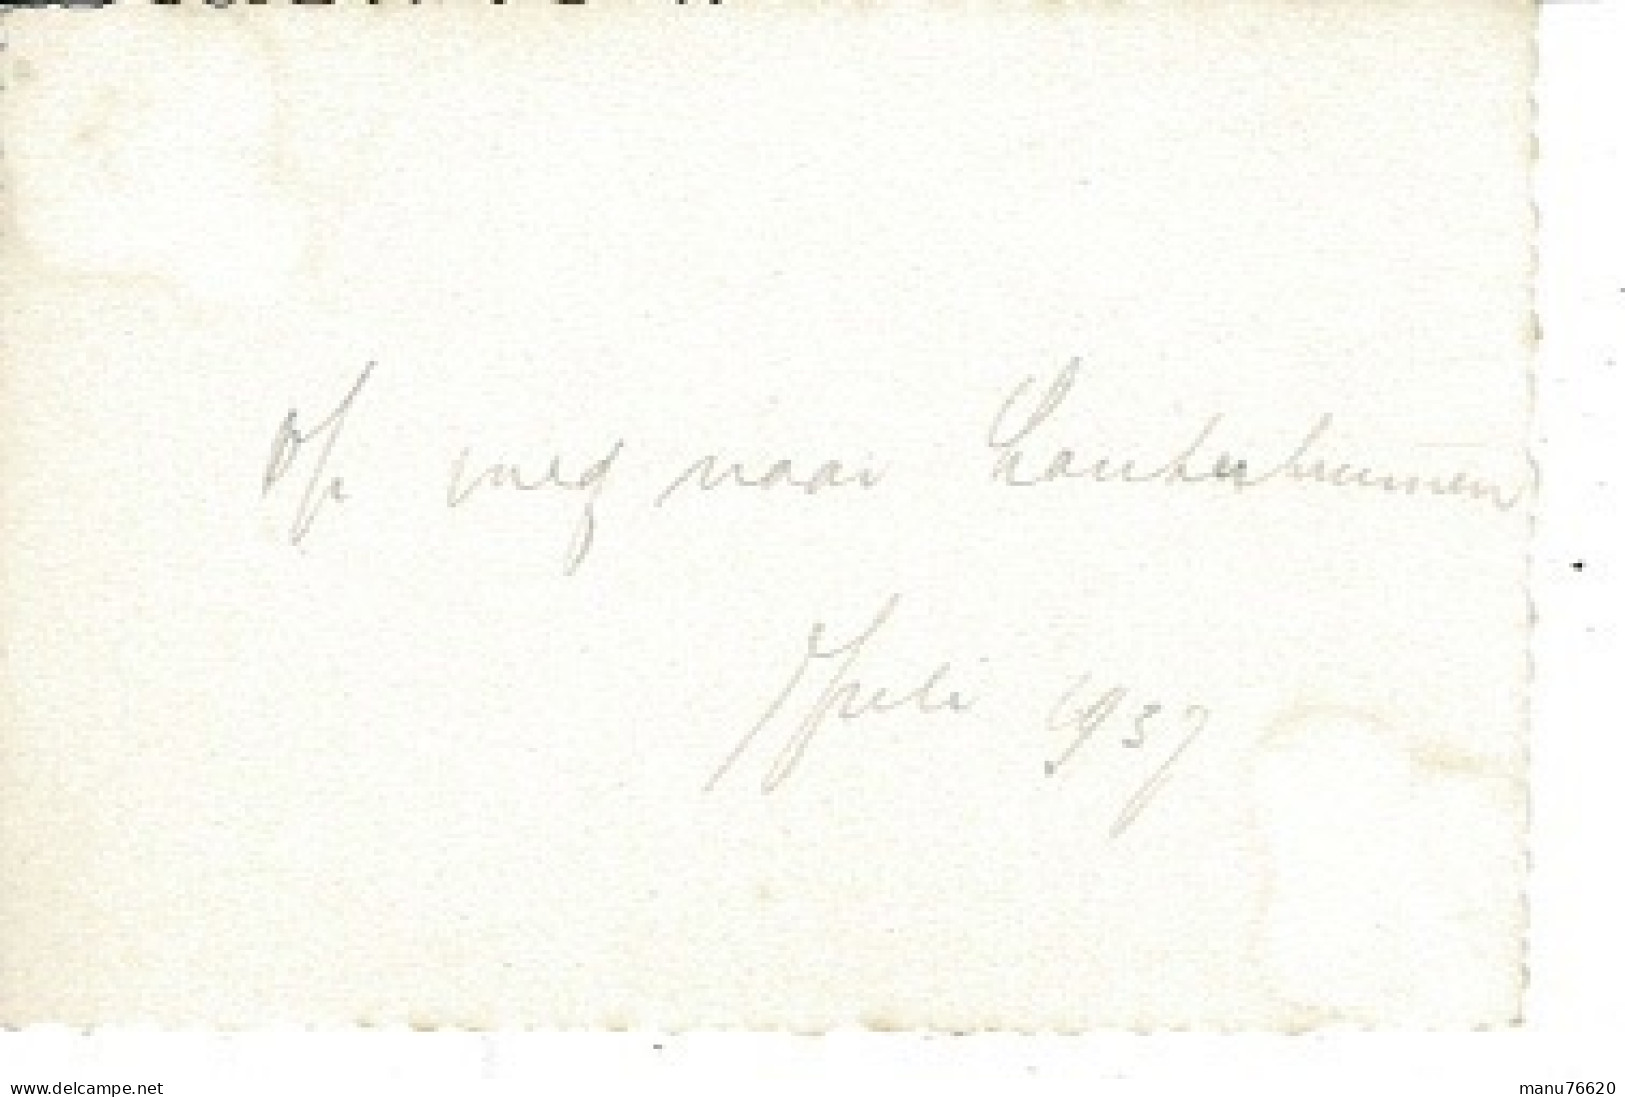 Op weg naar Lauterbrunnen
Juli 1937
www.delcampe.net
manu76620